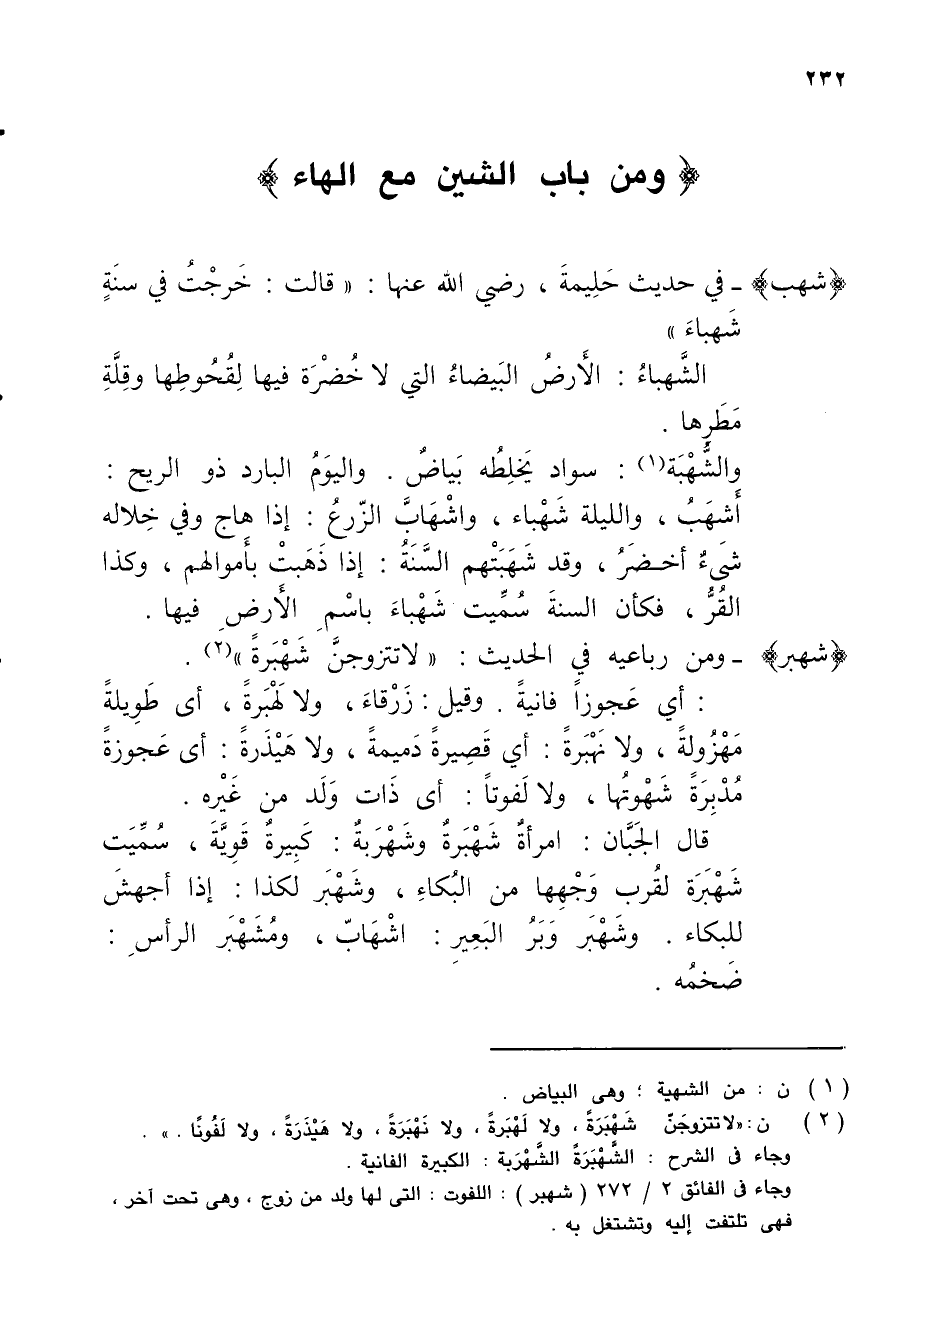 ٢٣٢
﴿ ومن باب الشين مع الهاء ﴾
﴿شهب﴾ ـ في حديث حَلِيمةَ ، رضي الله عنها : « قالت : خَرجْتُ في سنَةٍ
شَهباءَ »
الشَّهباءُ : الأَرضُ البَيضاءُ التي لا خُضْرَة فيها لِقُحُوطِها وقِلَّةِ
مَطَرِها .
والشُّهْبَة(١) : سواد يَخلِطُه بَياضٌ . واليوَمُ البارد ذو الريح :
أَشهَبُ ، والليلة شَهْباء ، واشْهَابَّ الزّرعُ : إذا هاج وفي خِلاله
شَىءٌ أخـضرُ ، وقد شَهَبَتْهم السَّنَةُ : إذا ذَهَبتْ بأموالهم ، وكذا
القُرُّ ، فكأن السنةَ سُمِّيت شَهْباءَ باسْمِ الأَرضِ فيها .
﴿شهبر﴾ ـ ومن رباعيه في الحديث : « لاتتزوجنَّ شَهْبَرةً »(٢) .
: أي عَجوزاً فانيةً . وقيل : زَرْقاءَ ، ولا لَهْبَرةً ، أى طَوِيلةً
مَهْزُولةً ، ولا نَهْبَرةً : أي قَصِيرةً دَميمةً ، ولا هَيْذَرةً : أى عَجوزةً
مُدْبِرَةً شَهْوتُها ، ولا لَفوتاً : أى ذَات وَلَد من غَيْره .
قال الجَبَّان : امرأةٌ شَهْبَرةٌ وشَهْرَبةٌ : كَبِيرةٌ قَوِيَّةَ ، سُمِّيَت
شَهْبَرَة لقُرب وَجْهِها من البُكاءِ ، وشَهْبَر لكذا : إذا أجهشَ
للبكاء . وشَهْبَر وَبَرُ البَعِيرِ : اشْهابّ ، ومُشَهْبَر الرأسِ :
ضَخمُه .
(١) ن : من الشهبة ؛ وهى البياض .
(٢) ن : «لاتتزوجَنّ شَهْبَرَةً ، ولا لَهْبرةً ، ولا نَهْبَرَةً ، ولا هَيْذَرَةً ، ولا لَفُوتًا . » .
وجاء فى الشرح : الشَّهْبَرَةُ الشَّهْرَبة : الكبيرة الفانية .
وجاء فى الفائق ٢ / ٢٧٢ ( شهبر ) : اللفوت : التى لها ولد من زوج ، وهى تحت آخر ،
فهى تلتفت إليه وتشتغل به .